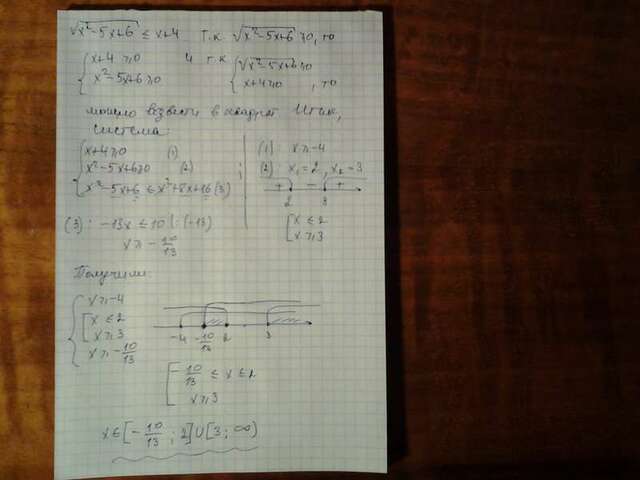 √x²-5x+6 ≤ x+4 т.к. √x²-5x+6 ≥0, то
{ x+4 ≥0
x²-5x+6≥0
и т.к. { √x²-5x+6≥0
x+4≥0 , то
можно возвести в квадрат Итак,
система:
{ x+4≥0 (1)
x²-5x+6≥0 (2)
x²-5x+6 ≤ x²+8x+16 (3)
(3): -13x ≤ 10 |:(-13)
x≥ - 10/13
(1): x≥-4
(2): x₁=2, x₂=3
+ - +
2 3
[ x ≤2
x≥3
Получили:
{ x≥-4
[ x ≤2
x≥3
x≥ - 10/13
-4 -10/13 2 3
[ -10/13 ≤ x ≤ 2
x≥3
x∈[-10/13 ; 2]∪[3; ∞)